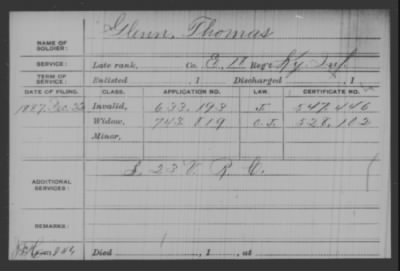 Glenn, Thomas
NAME OF SOLDIER:
SERVICE: Late rank, Co. E, 18 Reg't Ky. Inf.
TERM OF SERVICE: Enlisted , 1 Discharged , 1
DATE OF FILING. CLASS. APPLICATION NO. LAW. CERTIFICATE NO.
1887, Dec. 22 Invalid, 633.193 J. 547.446
Widow, 743.819 O.J. 528.102
Minor,
ADDITIONAL SERVICES: I, 23 V. R. C.
REMARKS:
Died , 1 , at